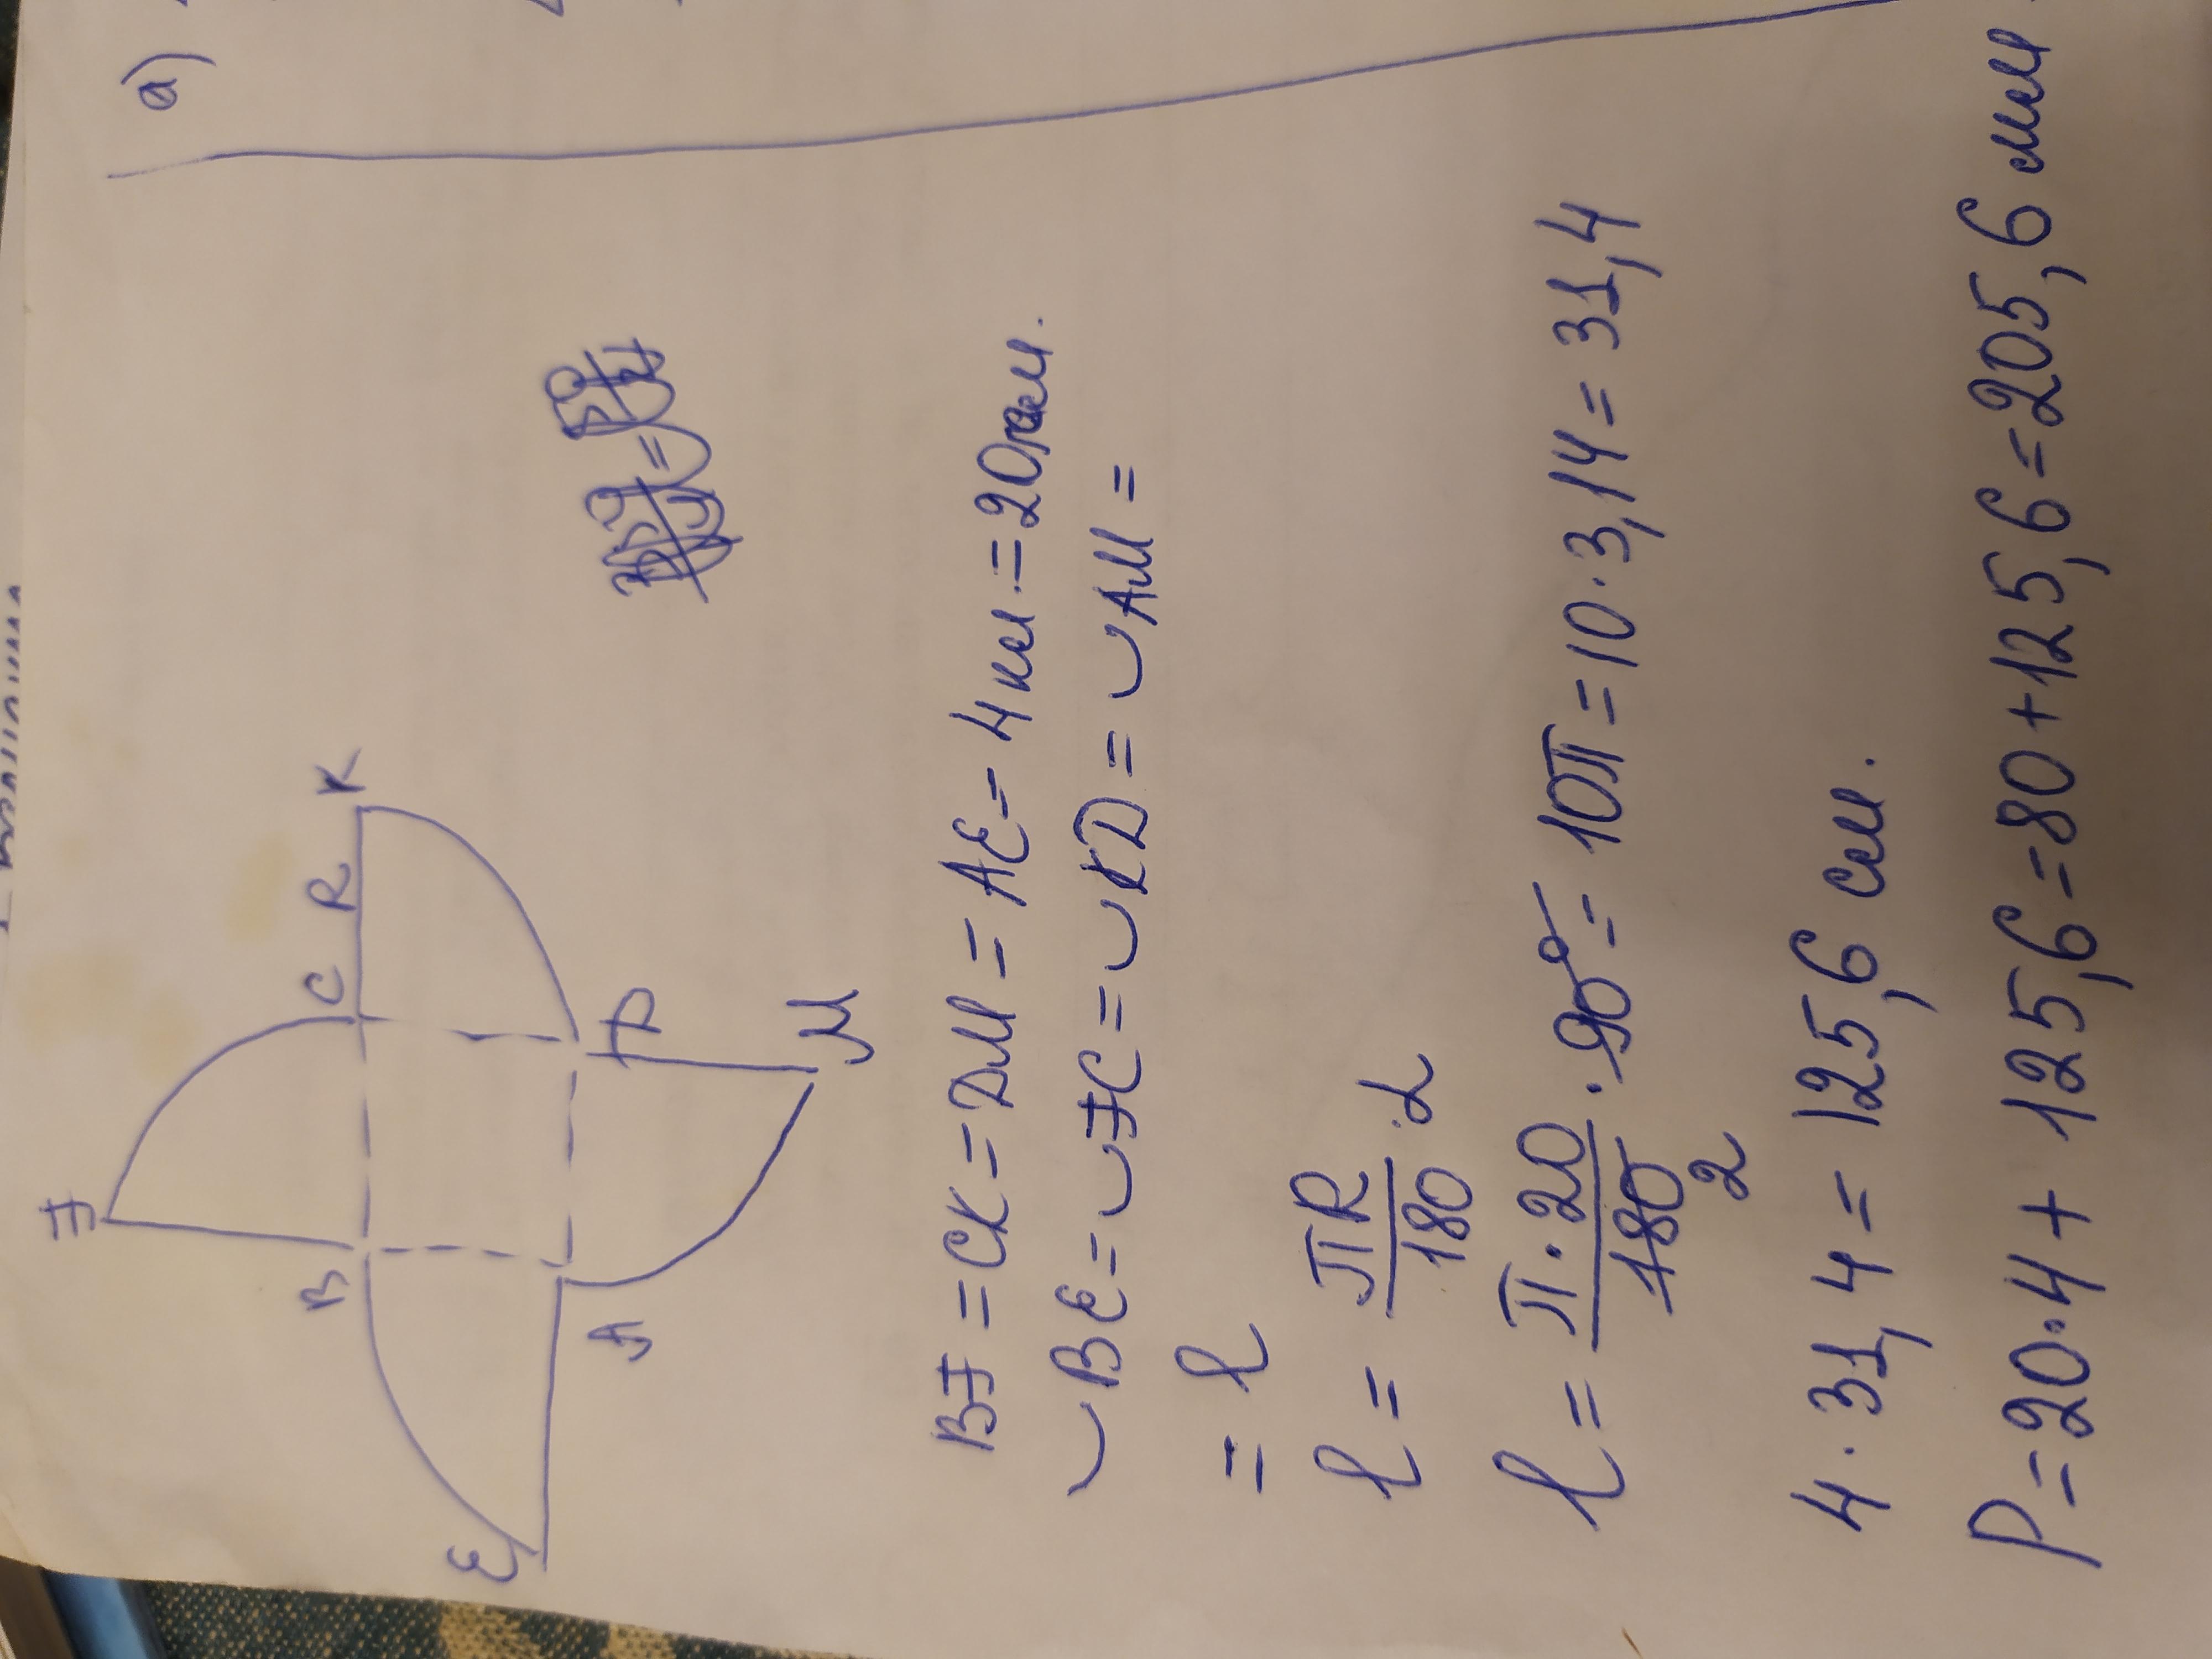 а)
F
B
C R K
E
A
D
M
BF = CK = DM = AE = 4 км. = 20 мм.
◡BE = ◡FC = ◡KD = ◡AM =
= l
l = πR/180 · α
l = π·20/180 · 90° = 10π = 10·3,14 = 31,4
2
4 · 31,4 = 125,6 см.
P = 20·4 + 125,6 = 80 + 125,6 = 205,6 мм